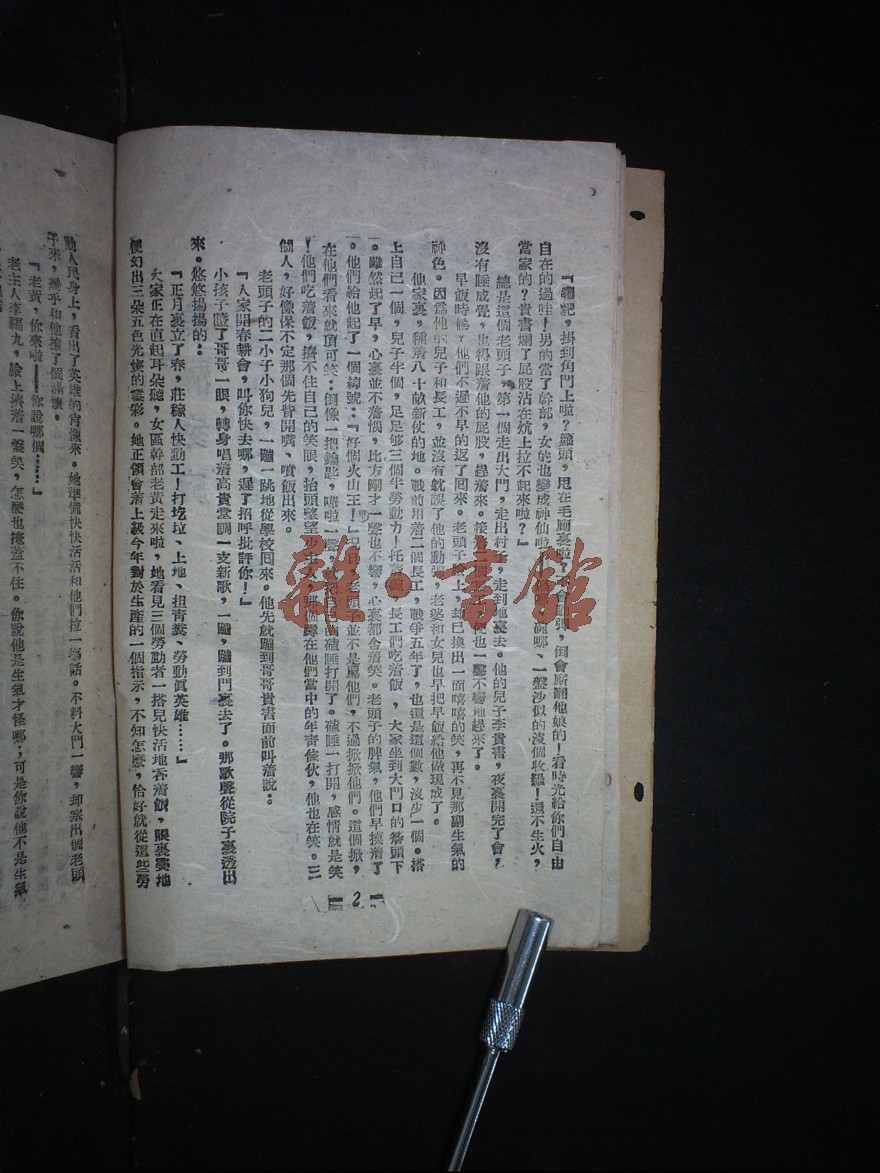 掛到角門上啦?鋤頭,甩在毛厠裏啦?
自在的過哇!男的當了幹部,女的也變成神仙啦!
當家的?貴書爛了屁股沾在炕上拉不起來啦?』
總是這個老頭子,第一個走出大門,走出村子,走到地裏去。他的兒子李貴書,夜裏開完了會,
沒有睡成覺,也得跟着他的屁股,
早飯時候,他們不遲不早的返了囘來。老頭子臉上,却已換出一面嘻嘻的笑,再不見那副生氣的
神色。因爲他的兒子和長工,並沒有躭誤了他的動彈,老婆和女兒也早把早飯給他做現成了。
他家裏,種着八十畝新伙的地。戰前用着二個長工,戰爭五年了,也還是這個數,沒少一個。搭
上自己一個,兒子半個,足足够三個半勞動力!托着碗,長工們吃着飯,大家坐到大門口的簷頭下
。雖然起了早,心裏並不着惱,比方剛才一聲也不響,心裏都含着笑。老頭子的脾氣,他們早摸着了
。他們給他起了一個綽號:『好個火山王!』老頭子並不是罵他們,不過掀掀他們。這個掀,
在他們看來就頂可笑:倒像一把鑰匙,打開了。一打開,感情就是笑
!他們吃着飯,擠不住自己的笑眼,抬頭望望那個蹲在他們當中的年青傢伙,他也在笑。三
個人,好像保不定那個先背開嘴、噴飯出來。
老頭子的二小子小狗兒,一蹦一跳地從學校囘來。他先就蹦到哥哥貴書面前叫着說:
『人家開春耕會,叫你快去哪,遲了招呼批評你!』
小孩子瞪了哥哥一眼,轉身唱着高貴堂調一支新歌,一蹦,蹦到門裏去了。那歌聲從院子裏透出
來。悠悠揚揚的:
『正月裏立了春,莊稼人快動工!打圪垃、上地、担靑糞、勞動眞英雄……』
大家正在直起耳朵聽,女區幹部老黃走來啦,她看見三個勞動者一搭兒快活地吞着飯,眼裏驀地
便幻出三朵五色光燦的雲彩。她正領會着上級今年對於生產的一個指示,不知怎麽,恰好就從這些勞
2
動人民身上,看出了英雄的肖像來。她準備快快活活和他們拉一些話。不料大門一響,却寀出個老頭
子來,幾乎和他撞了個滿懷。
『老黃,你來啦——你說哪個……』
老主人李福九,臉上擠着一盤笑,怎麽也掩蓋不住。你說他是生氣才怪哪;可是你說他不是生氣
雜·書館